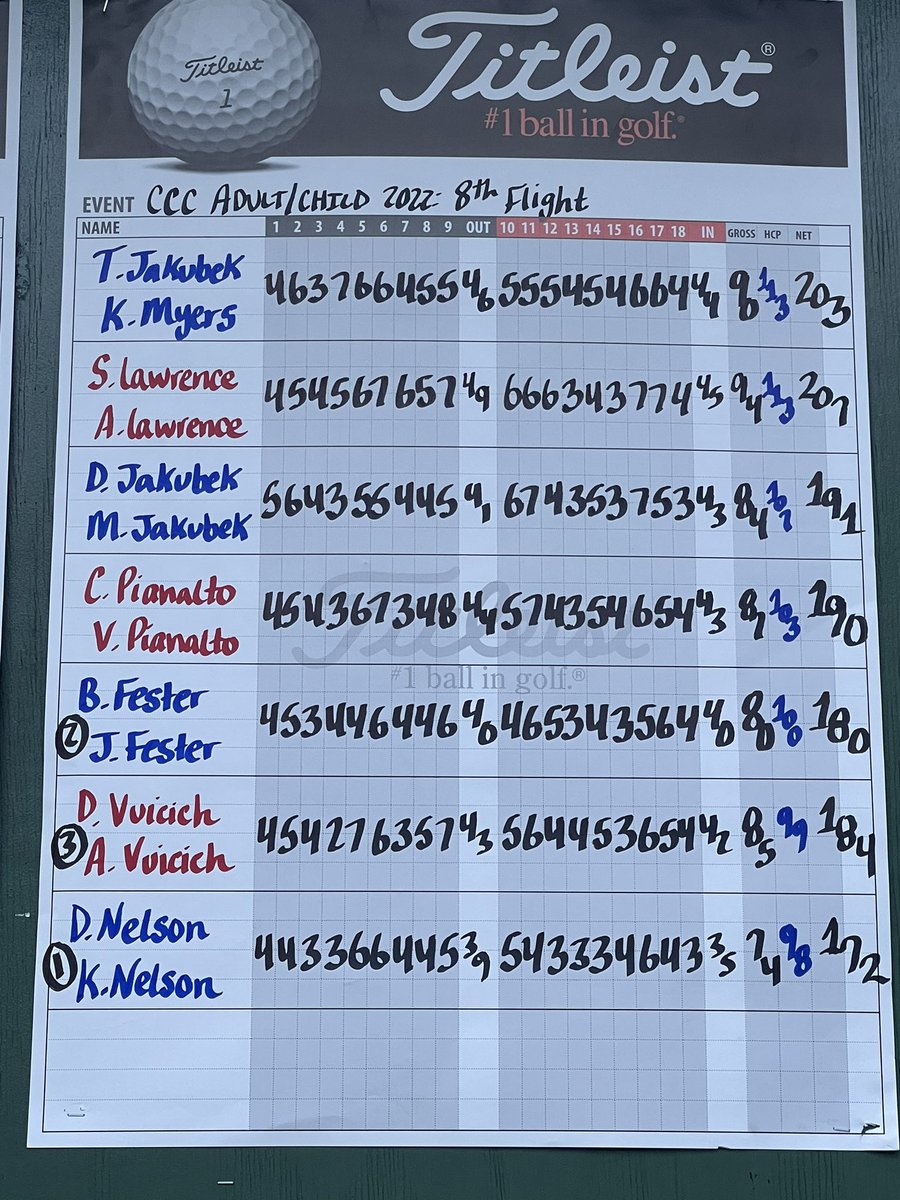 Titleist
1
Titleist®
#1 ball in golf.®
EVENT CCC ADULT/CHILD 2022: 8th Flight
NAME 1 2 3 4 5 6 7 8 9 OUT 10 11 12 13 14 15 16 17 18 IN GROSS HCP NET
T. Jakubek
K. Myers
4 6 3 7 6 6 4 5 5 46 5 5 5 4 5 4 6 6 4 44 90 113 203
S. Lawrence
A. Lawrence
4 5 4 5 6 7 6 5 7 49 6 6 6 3 4 3 7 7 4 45 94 113 207
D. Jakubek
M. Jakubek
5 6 4 3 5 5 4 4 5 41 6 7 4 3 5 3 7 5 3 43 84 107 191
C. Pianalto
V. Pianalto
4 5 4 3 6 7 3 4 8 44 5 7 4 3 5 4 6 5 4 43 87 103 190
Titleist
#1 ball in golf.®
B. Fester
② J. Fester
4 5 3 4 4 6 4 4 6 40 4 6 5 3 4 3 5 6 4 40 80 100 180
D. Vuicich
③ A. Vuicich
4 5 4 2 7 6 3 5 7 43 5 6 4 4 5 3 6 5 4 42 85 99 184
D. Nelson
① K. Nelson
4 4 3 3 6 6 4 4 5 39 5 4 3 3 3 4 6 4 3 35 74 98 172